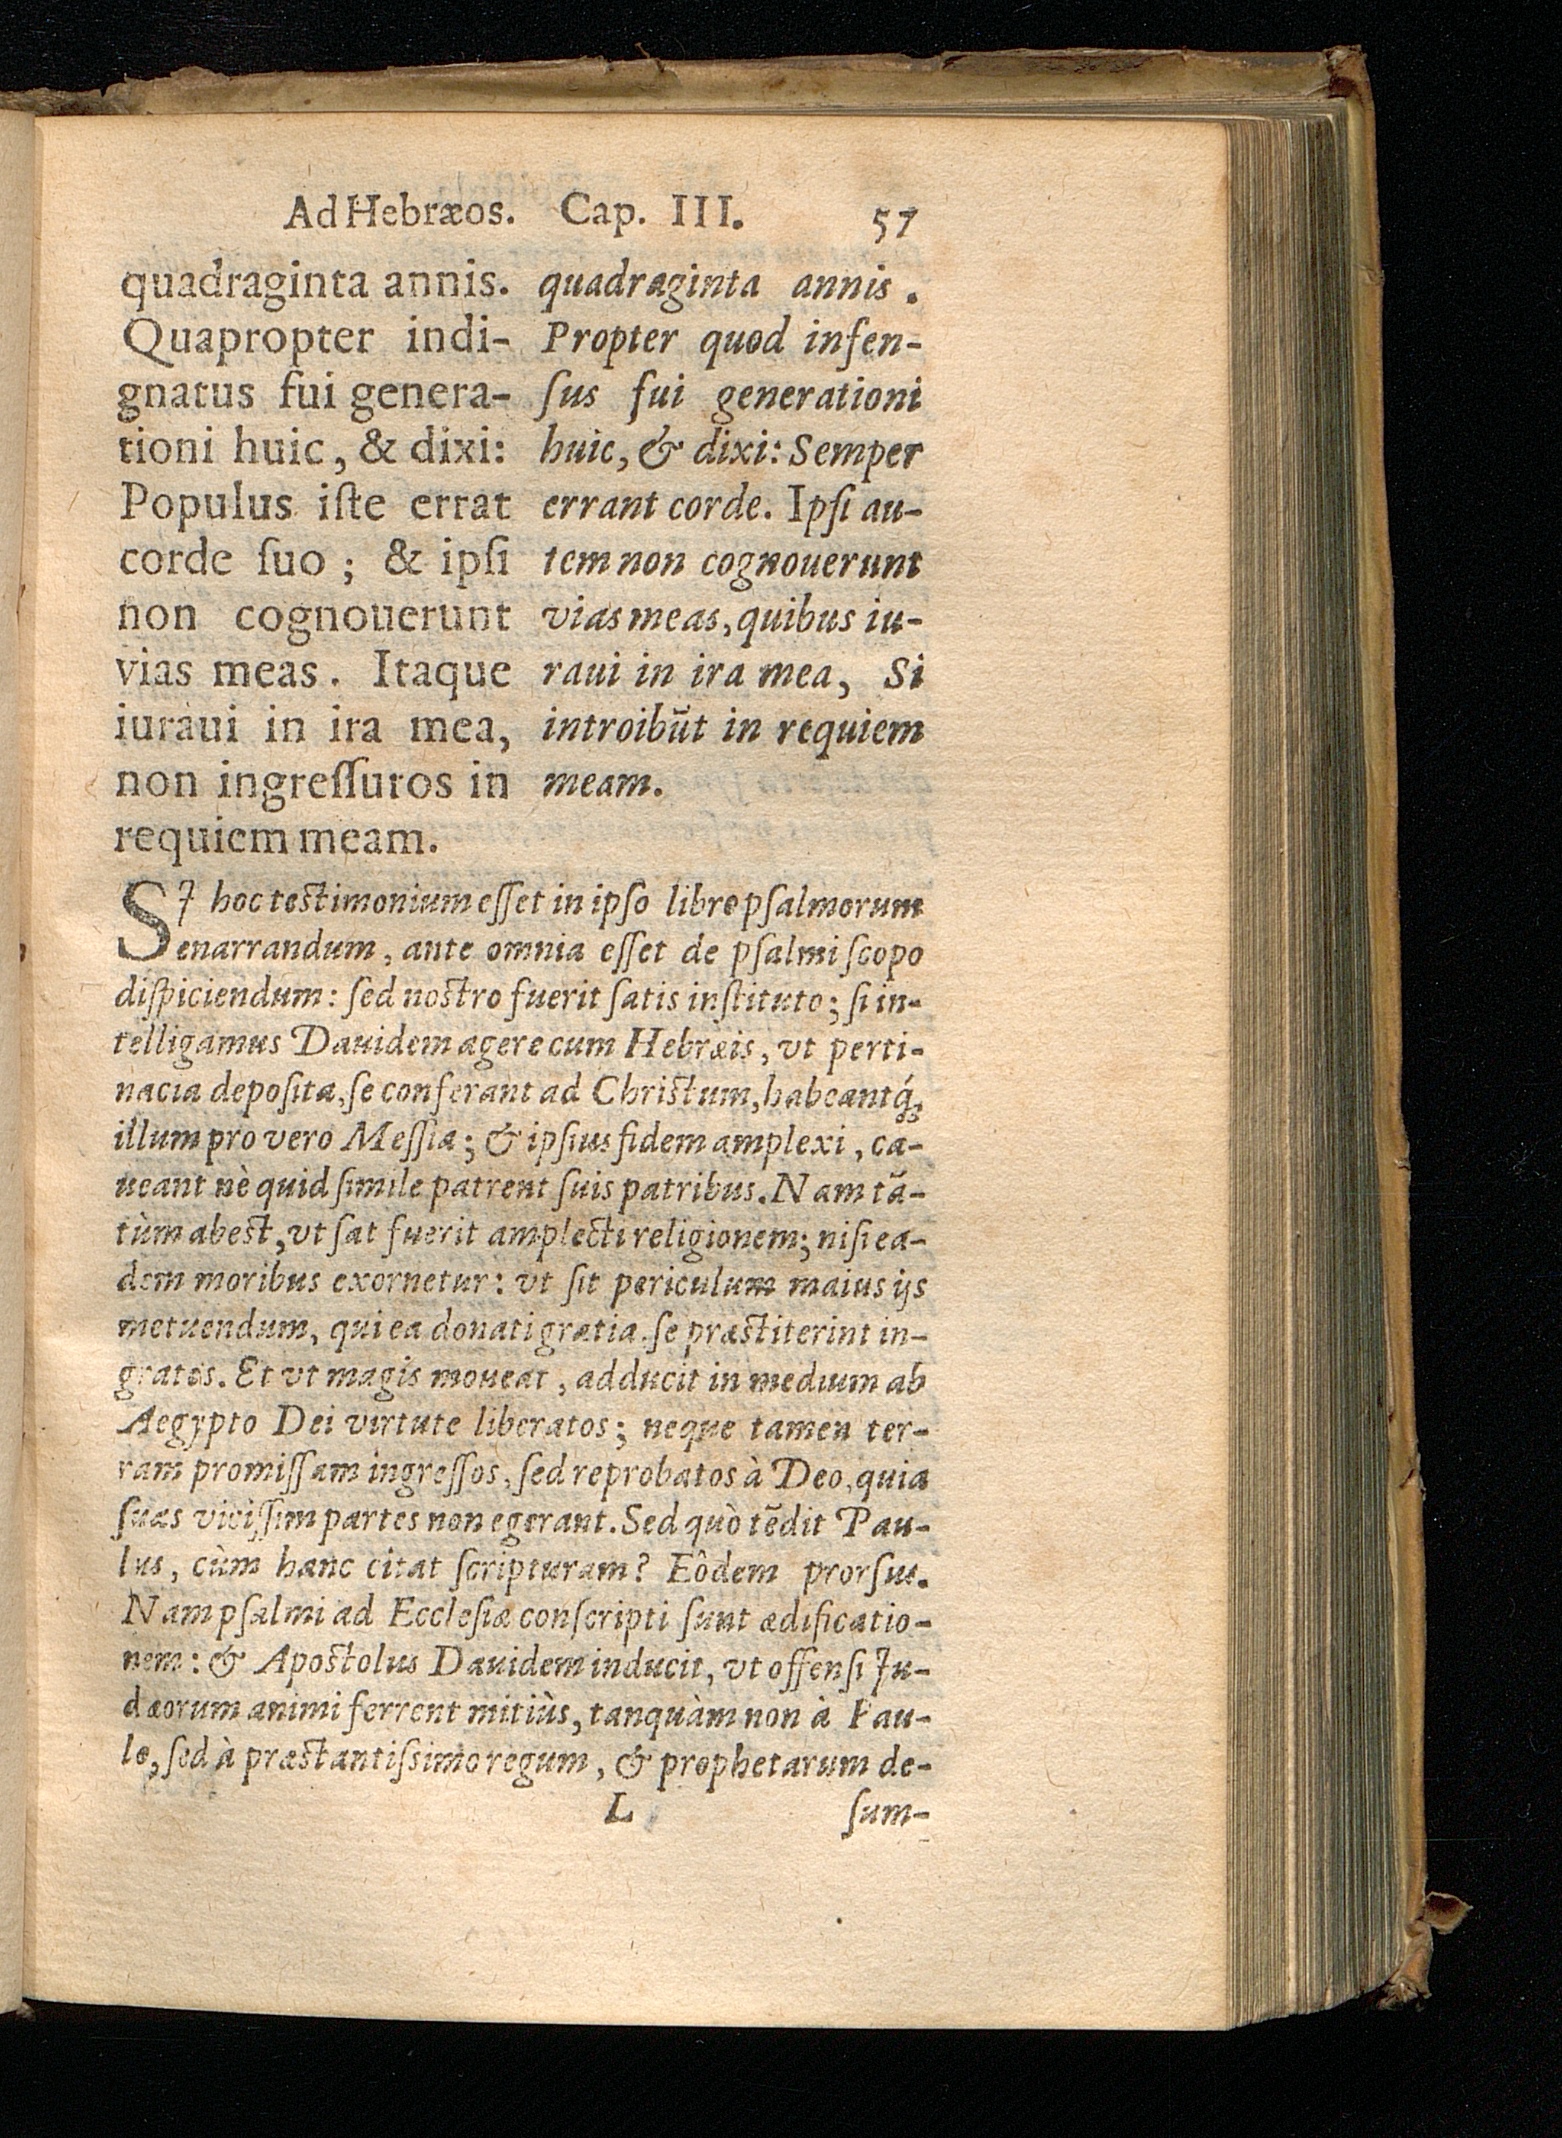 Ad Hebræos. Cap. III. 57
quadraginta annis.
Quapropter indi-
gnatus fui genera-
tioni huic, & dixi:
Populus iſte errat
corde ſuo; & ipſi
non cognouerunt
vias meas. Itaque
iuraui in ira mea,
non ingreſſuros in
requiem meam.
quadraginta annis.
Propter quod infen-
ſus fui generationi
huic, & dixi: Semper
errant corde. Ipſi au-
tem non cognouerunt
vias meas, quibus iu-
raui in ira mea, Si
introibũt in requiem
meam.
SI hoc testimonium eſſet in ipſo libro pſalmorum
enarrandum, ante omnia eſſet de pſalmi ſcopo
diſpiciendum: ſed nostro fuerit ſatis inſtituto; ſi in-
telligamus Dauidem agere cum Hebræis, vt perti-
nacia depoſita, ſe conferant ad Christum, habeantq́;
illum pro vero Meſſia; & ipſius fidem amplexi, ca-
ueant nè quid ſimile patrent ſuis patribus. Nam tã-
tùm abest, vt ſat fuerit amplecti religionem; niſi ea-
dem moribus exornetur: vt ſit periculum maius ijs
metuendum, qui ea donati gratia ſe præstiterint in-
gratos. Et vt magis moueat, adducit in medium ab
Aegypto Dei virtute liberatos; neque tamen ter-
ram promiſſam ingreſſos, ſed reprobatos à Deo, quia
ſuas viciſſim partes non egerant. Sed quò tẽdit Pau-
lus, cùm hanc citat ſcripturam? Eôdem prorſus.
Nam pſalmi ad Eccleſiæ conſcripti ſunt ædificatio-
nem: & Apostolus Dauidem inducit, vt offenſi Iu-
dæorum animi ferrent mitiùs, tanquàm non à Pau-
lo, ſed à præstantiſsimo regum, & prophetarum de-
L ſum-